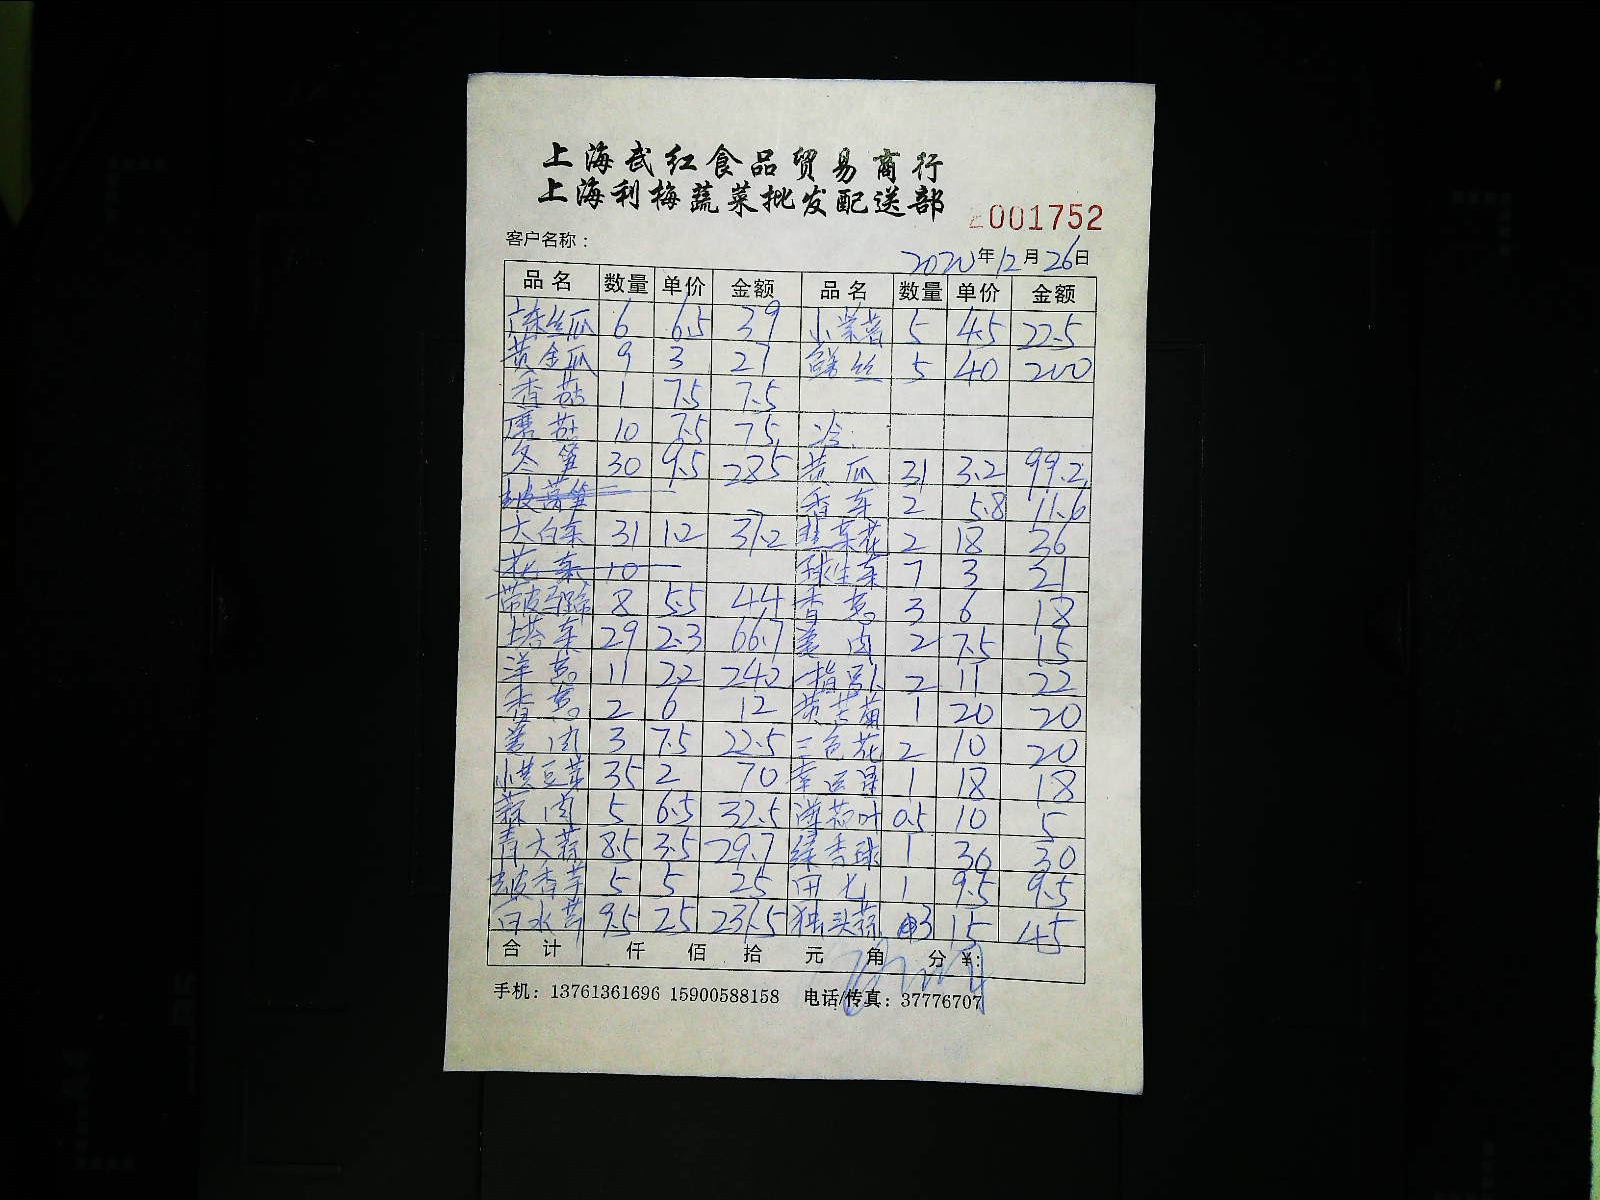 上海武红食品贸易商行
上海利梅蔬菜批发配送部
2001752
客户名称：
2020年12月26日
品名 数量 单价 金额 品名 数量 单价 金额
丝瓜 6 6.5 39 小棠菜 5 4.5 22.5
黄金瓜 9 3 27 丝 5 40 200
香菇 1 7.5 7.5
磨菇 10 7.5 75 冷:
冬笋 30 9.5 285 黄瓜 31 3.2 99.2
去皮莴笋 香车 2 5.8 11.6
大白车 31 1.2 37.2 韭菜花 2 18 36
花菜 10 球生菜 7 3 21
带皮 8 5.5 44 香葱 3 6 18
塔菜 29 2.3 66.7 姜肉 2 7.5 15
洋葱 11 2.2 24.2 2 11 22
香葱 2 6 12 黄苦菊 1 20 20
姜肉 3 7.5 22.5 三色花 2 10 20
小黄豆芽 35 2 70 幸运星 1 18 18
蒜肉 5 6.5 32.5 薄荷叶 0.5 10 5
青大蒜 8.5 3.5 29.7 绿香球 1 30 30
去皮香芋 5 5 25 田七 1 9.5 9.5
白水芹 9.5 25 237.5 独头蒜 3 15 45
合计 仟 佰 拾 元 角 分 ¥:
手机：13761361696 15900588158 电话/传真：37776707